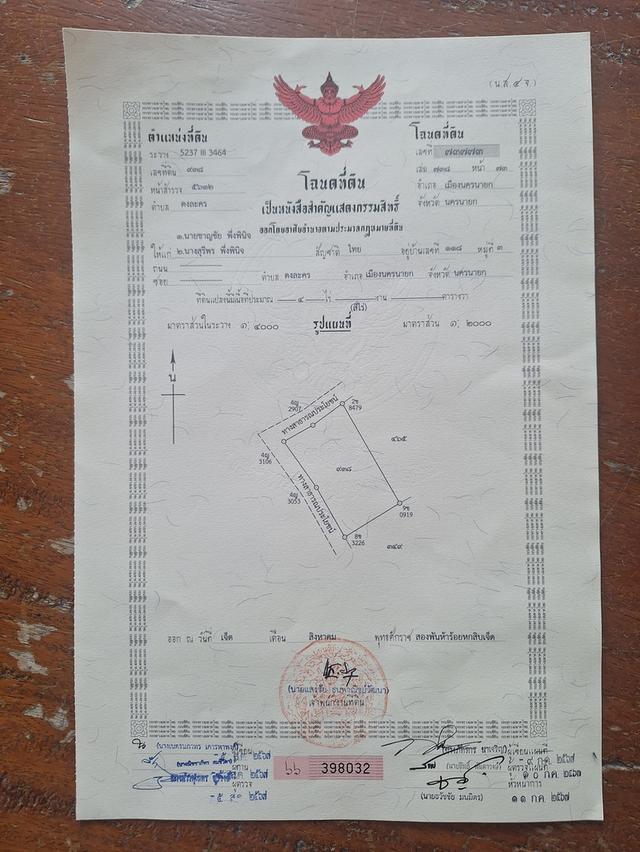 (น.ส. ๔ จ.)
ตำแหน่งที่ดิน
ระวาง 5237 III 3464
เลขที่ดิน ๙๓๘
หน้าสำรวจ ๕๖๓๒
ตำบล ดงละคร
โฉนดที่ดิน
เลขที่ ๗๓๗๗๓
เล่ม ๗๓๘ หน้า ๗๓
อำเภอ เมืองนครนายก
จังหวัด นครนายก
โฉนดที่ดิน
เป็นหนังสือสำคัญแสดงกรรมสิทธิ์
ออกโดยอาศัยอำนาจตามประมวลกฎหมายที่ดิน
๑.นายชาญชัย พึ่งพินิจ
ให้แก่ ๒.นางสุรีพร พึ่งพินิจ สัญชาติ ไทย อยู่บ้านเลขที่ ๑๑๘ หมู่ที่ ๓
ถนน
ซอย ตำบล ดงละคร อำเภอ เมืองนครนายก จังหวัด นครนายก
ที่ดินแปลงนี้มีเนื้อที่ประมาณ ๔ ไร่ งาน ตารางวา
(สี่ไร่)
มาตราส่วนในระวาง ๑: ๔๐๐๐ รูปแผนที่ มาตราส่วน ๑: ๒๐๐๐
น
4ญ
2907
2ช
8479
ทางสาธารณประโยชน์
๔๖๕
4ญ
3106
๙๓๘
4ญ
3053
ทางสาธารณประโยชน์
9ช
0919
8ช
3226
๓๔๙
ออก ณ วันที่ เจ็ด เดือน สิงหาคม พุทธศักราช สองพันห้าร้อยหกสิบเจ็ด
เจ้าพนักงานที่ดิน
ผู้เขียนแผนที่
- ๙ กค ๒๕๖๗
ผู้ตรวจแผนที่
๑๐ กค
หัวหน้าการ
(นายธวัชชัย มนมิตร) ๑๑ กค ๒๕๖๗
ผู้ตรวจ
๒๕๖๗
398032